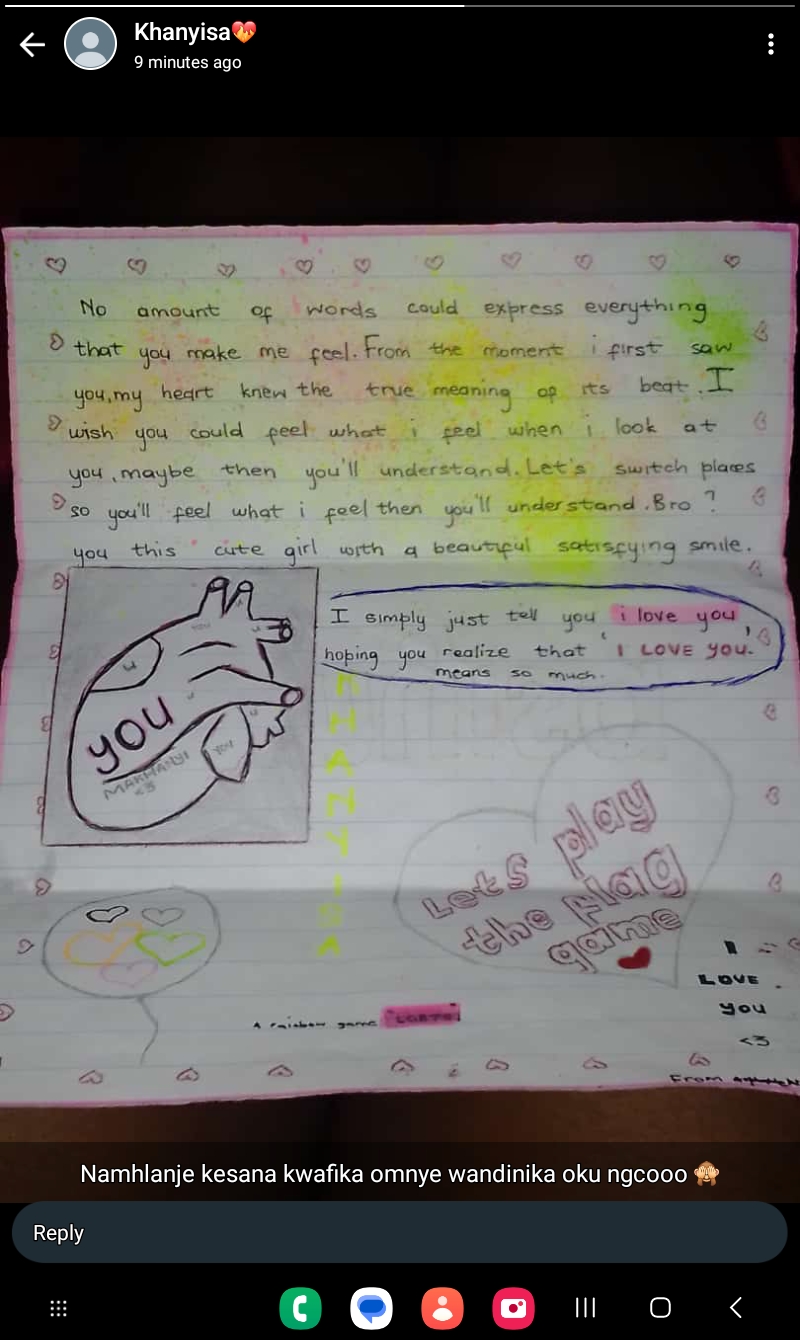 Khanyisa
9 minutes ago
No amount of words could express everything
that you make me feel. From the moment i first saw
you, my heart knew the true meaning of its beat. I
wish you could feel what i feel when i look at
you, maybe then you'll understand. Let's switch places
so you'll feel what i feel then you'll understand. Bro ?
you this cute girl with a beautiful satisfying smile.
I simply just tell you i love you
hoping you realize that ' I LOVE YOU. '
means so much.
you
MAKHANYI
<3
u
u
you
KHANYISA
Lets play
the Flag
game
A rainbow game
I
LOVE
you
<3
From
Namhlanje kesana kwafika omnye wandinika oku ngcooo 🙈
Reply